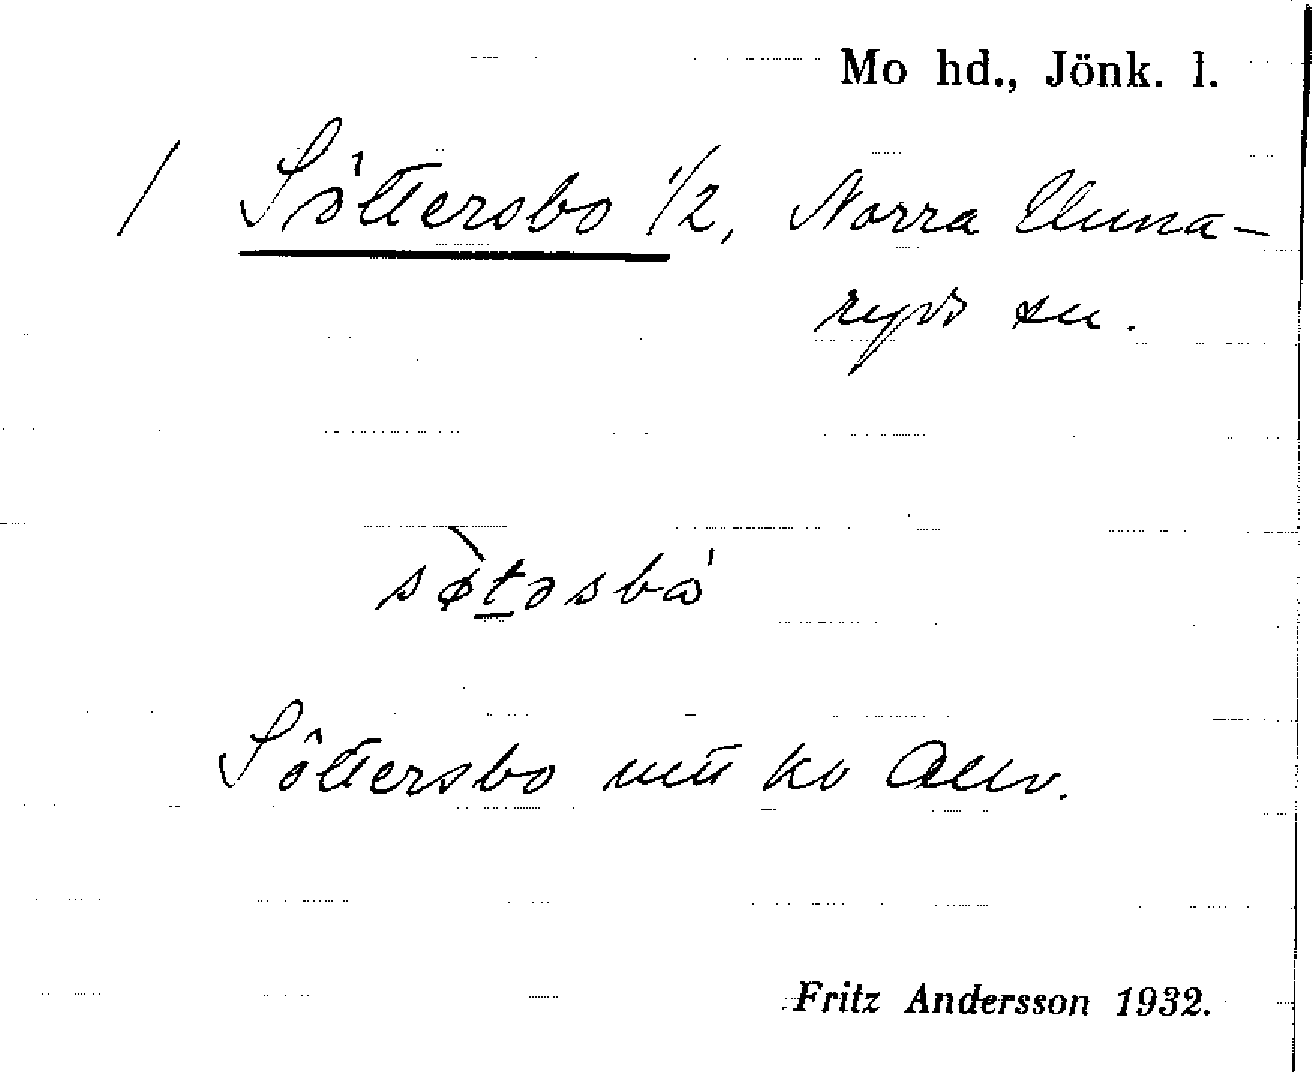 Mo hd., Jönk. l.
/ Söttersbo 1/2, Norra Unna-
ryds sn.
søtəsbo
Söttersbo utt
Fritz Andersson 1932.